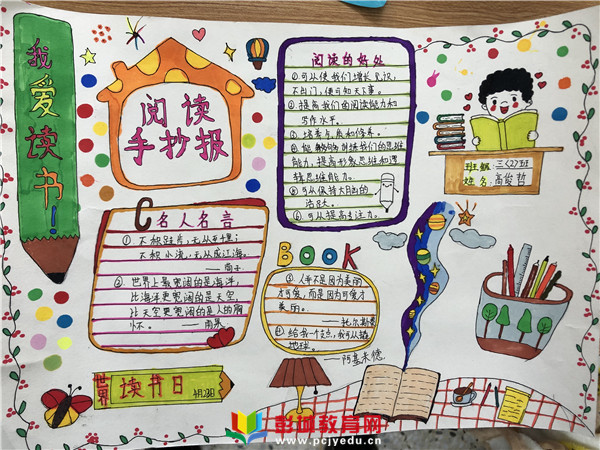 我爱读书!
阅读
手抄报
阅读的好处
①可以使我们增长见识,
不出门,便可知天下事。
②提高我们的阅读能力和
写作水平。
③培养气质和修养。
④能够够训练我们的思维
能力,提高形象思维和逻
辑思维能力。
⑤可以保持大脑的
活跃。
⑥可以提高专注力。
班级:三(2)班
姓名:高俊哲
C名人名言
①不积跬步,无以至千里;
不积小流,无以成江海。
——荀子
②世界上最宽阔的是海洋,
比海洋更宽阔的是天空,
比天空更宽阔的是人的胸
怀。——雨果
BOOK
③人不是因为美丽
才可爱,而是因为可爱才
美丽。
——托尔斯泰
④给我一个支点,我可以撬
地球。
——阿基米德
世界读书日
4月23日
彭城教育网
www.pcjyedu.cn